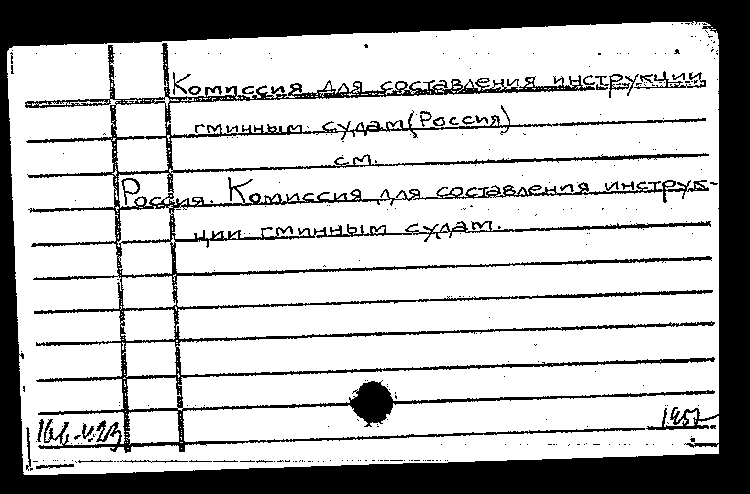 Комиссия для составления инструкции
гминным судам (Россия)
см.
Россия. Комиссия для составления инструк-
ции гминным судам.
1957